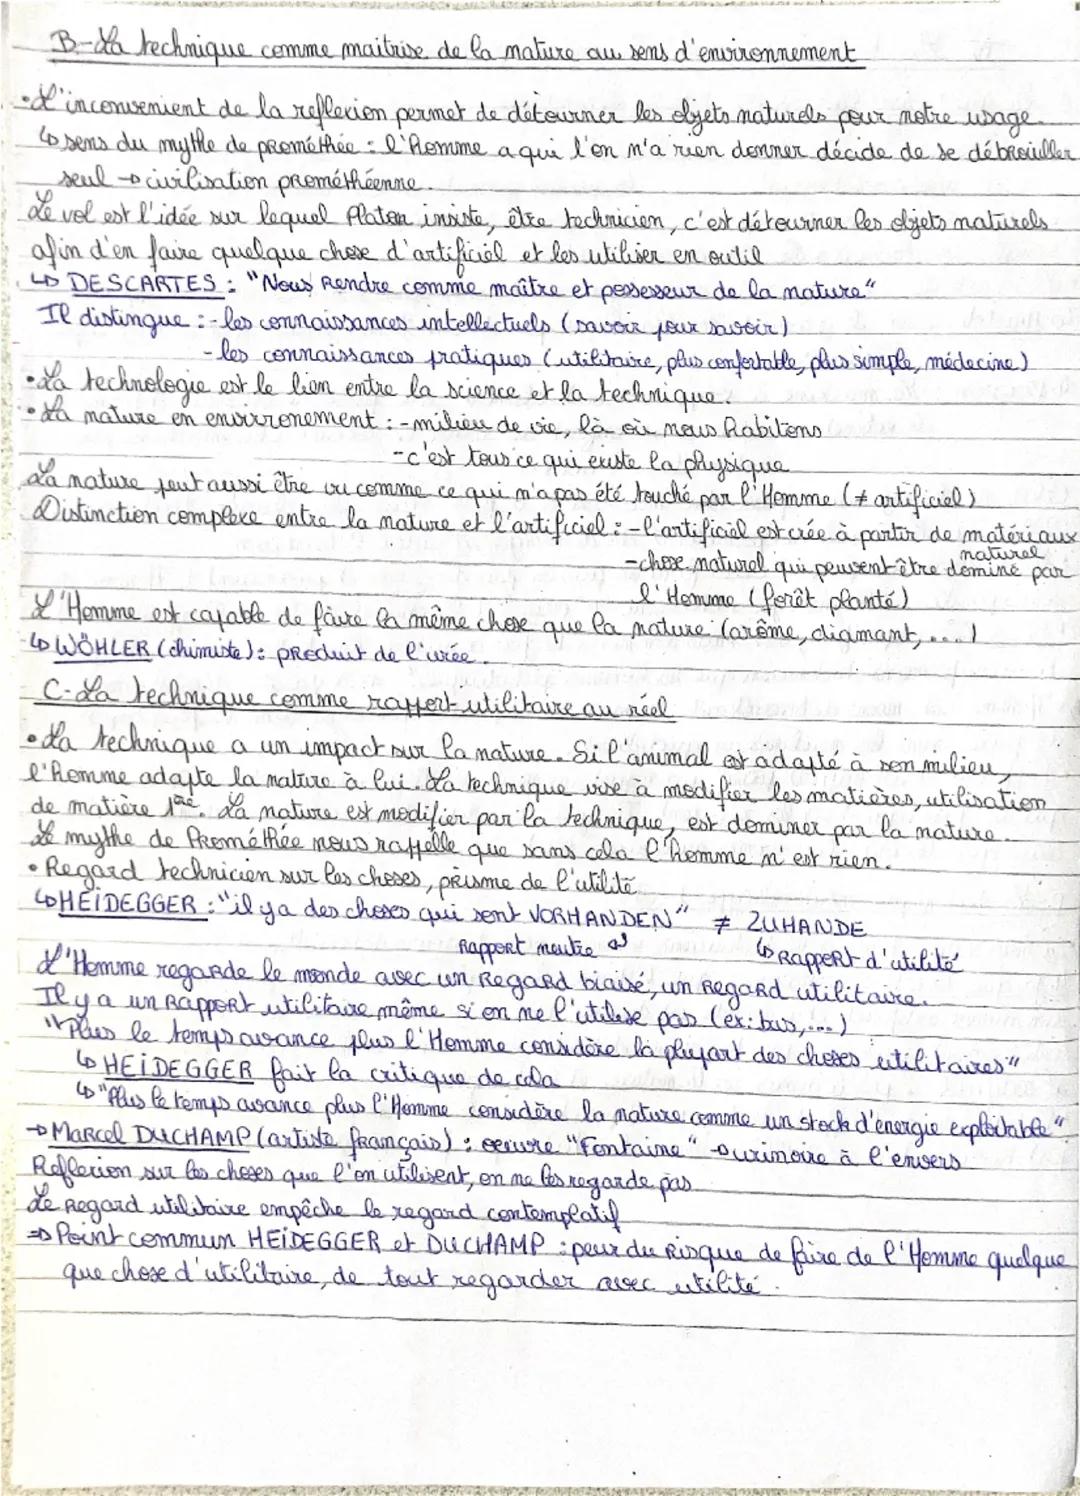 B-La technique comme maitrise de la nature au sens d'environnement
• L'inconvenient de la reflexion permet de détourner les objets naturels pour notre usage.
↳ sens du mythe de prométhée : l'homme a qui l'on n'a rien donner décide de se débrouiller
seul → civilisation prométhéenne.
Le vol est l'idée sur lequel Platon insiste, être technicien, c'est détourner les objets naturels
afin d'en faire quelque chose d'artificiel et les utiliser en outil
↳ DESCARTES : "Nous rendre comme maître et possesseur de la nature"
Il distingue : - les connaissances intellectuels (savoir pour savoir)
- les connaissances pratiques (utilitaire, plus confortable, plus simple, médecine)
• La technologie est le lien entre la science et la technique.
• La nature en envirronement : - milieu de vie, là où nous habitons
- c'est tous ce qui existe la physique
La nature peut aussi être vu comme ce qui n'a pas été touché par l'Homme (≠ artificiel)
Distinction complexe entre la nature et l'artificiel : - l'artificiel est crée à partir de matériaux
naturel
- chose naturel qui peuvent être dominé par
l'Homme (forêt planté)
L'Homme est capable de faire la même chose que la nature (arôme, diamant, ...)
↳ WÖHLER (chimiste) : produit de l'urée.
C-La technique comme rapport utilitaire au réel
• La technique a un impact sur la nature. Si l'animal est adapté à son milieu,
l'homme adapte la nature à lui. La technique vise a modifier les matières, utilisation
de matière 1ère. La nature est modifier par la technique, est dominer par la nature.
Le mythe de Prométhée nous rappelle que sans cela l'homme n'est rien.
• Regard technicien sur les choses, prisme de l'utilité
↳ HEIDEGGER : "il y a des choses qui sont VORHANDEN" ≠ ZUHANDE
Rapport neutre ↲ ↳ Rapport d'utilité
L'Homme regarde le monde avec un Regard biaisé, un Regard utilitaire.
Il y a un Rapport utilitaire même si on ne l'utilise pas (ex: bus, ...)
"Plus le temps avance plus l'Homme considère la plupart des choses utilitaires"
↳ HEIDEGGER fait la critique de cela
↳ "Plus le temps avance plus l'Homme considère la nature comme un stock d'énergie exploitable".
→ Marcel DUCHAMP (artiste français) : oeuvre "Fontaine" → urinoire à l'envers
Réflexion sur les choses que l'on utilisent, on ne les regarde pas
Le Regard utilitaire empêche le regard contemplatif
⇒ Point commun HEIDEGGER et DUCHAMP : peur du Risque de faire de l'Homme quelque
que chose d'utilitaire, de tout regarder avec utilité.